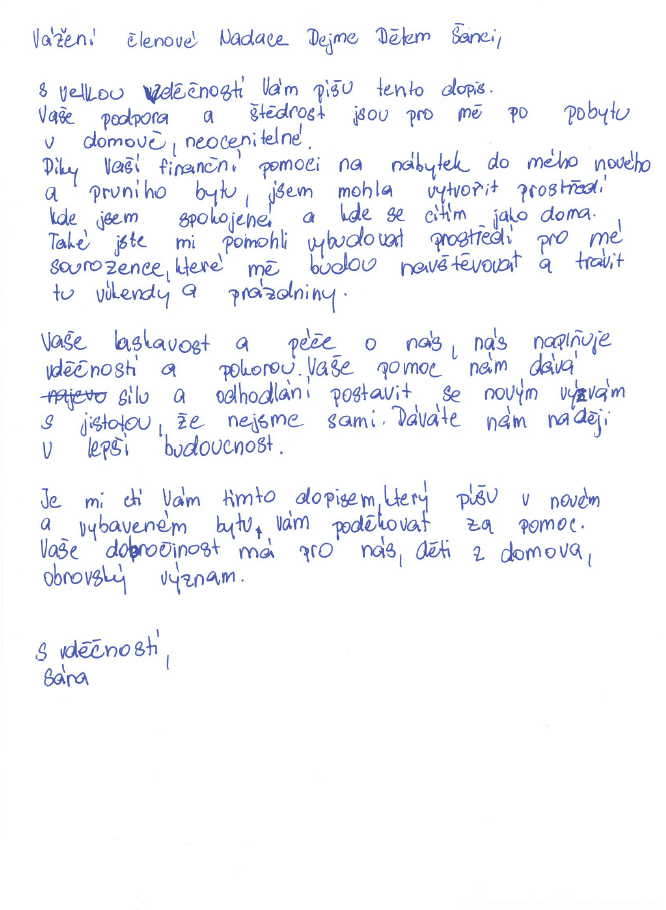 Vážení členové Nadace Dejme Dětem Šanci,
s velkou vděčností Vám píšu tento dopis.
Vaše podpora a štědrost jsou pro mě po pobytu
v domově, neocenitelné.
Díky Vaší finanční pomoci na nábytek do mého nového
a prvního bytu, jsem mohla vytvořit prostředí
kde jsem spokojená a kde se cítím jako doma.
Také jste mi pomohli vybudovat prostředí pro mé
sourozence, které mě budou navštěvovat a trávit
tu víkendy a prázdniny.
Vaše laskavost a péče o nás, nás naplňuje
vděčností a pokorou. Vaše pomoc nám dává
sílu a odhodlání postavit se novým výzvám
s jistotou, že nejsme sami. Dáváte nám naději
v lepší budoucnost.
Je mi ctí Vám tímto dopisem, který píšu v novém
a vybaveném bytu, vám poděkovat za pomoc.
Vaše dobročinost má pro nás, děti z domova,
obrovský význam.
S vděčností,
Sára